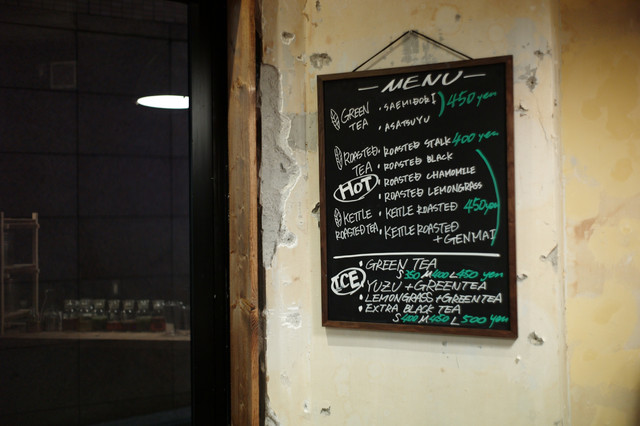 MENU
GREEN TEA
・SAEMIDORI
450 yen
・ASATSUYU
ROASTED TEA
・ROASTED STALK 400 yen
・ROASTED BLACK
HOT
・ROASTED CHAMOMILE
・ROASTED LEMONGRASS
KETTLE ROASTED TEA
・KETTLE ROASTED 450 yen
・KETTLE ROASTED
+GENMAI
ICE
・GREEN TEA
S 350 M 400 L 450 yen
・YUZU+GREENTEA
・LEMONGRASS+GREENTEA
・EXTRA BLACK TEA
S 400 M 450 L 500 yen